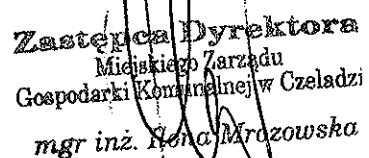 Zastępca Dyrektora
Miejskiego Zarządu
Gospodarki Komunalnej w Czeladzi
mgr inż. Ilona Mrozowska